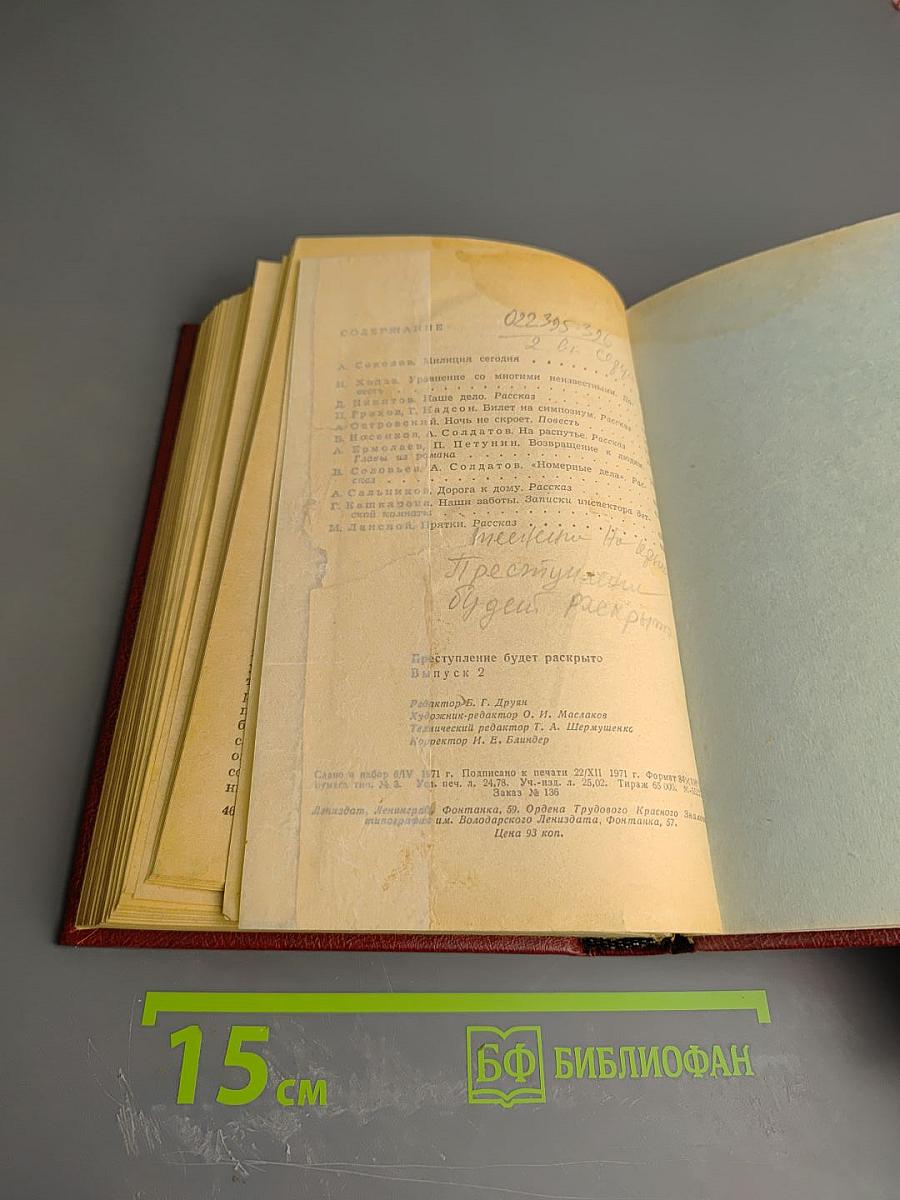 СОДЕРЖАНИЕ
022395-396
2
А. Соколов. Милиция сегодня
И. Ходза. Уравнение со многими неизвестными. По-
весть
Д. Никитов. Наше дело. Рассказ
П. Грахов, Г. Надсон. Билет на симпозиум. Рассказ
А. Островский. Ночь не скроет. Повесть
В. Носенков, А. Солдатов. На распутье. Рассказ
А. Ермолаев, П. Петунин. Возвращение к людям.
Главы из романа
В. Соловьев, А. Солдатов. «Номерные дела». Рас-
сказ
А. Сальников. Дорога к дому. Рассказ
Г. Кашкарова. Наши заботы. Записки инспектора дет-
ской комнаты
М. Ланской. Прятки. Рассказ
Преступление
будет раскрыто
Преступление будет раскрыто
Выпуск 2
Редактор Б. Г. Друян
Художник-редактор О. И. Маслаков
Технический редактор Т. А. Шермушенко
Корректор И. Е. Блиндер
Сдано в набор 6/IV 1971 г. Подписано к печати 22/XII 1971 г. Формат
бумага тип. № 3. Усл. печ. л. 24,78. Уч.-изд. л. 25,02. Тираж 65 000.
Заказ № 136
Лениздат, Ленинград, Фонтанка, 59. Ордена Трудового Красного Знамени
типография им. Володарского Лениздата, Фонтанка, 57.
Цена 93 коп.
46
15 см
БФ БИБЛИОФАН